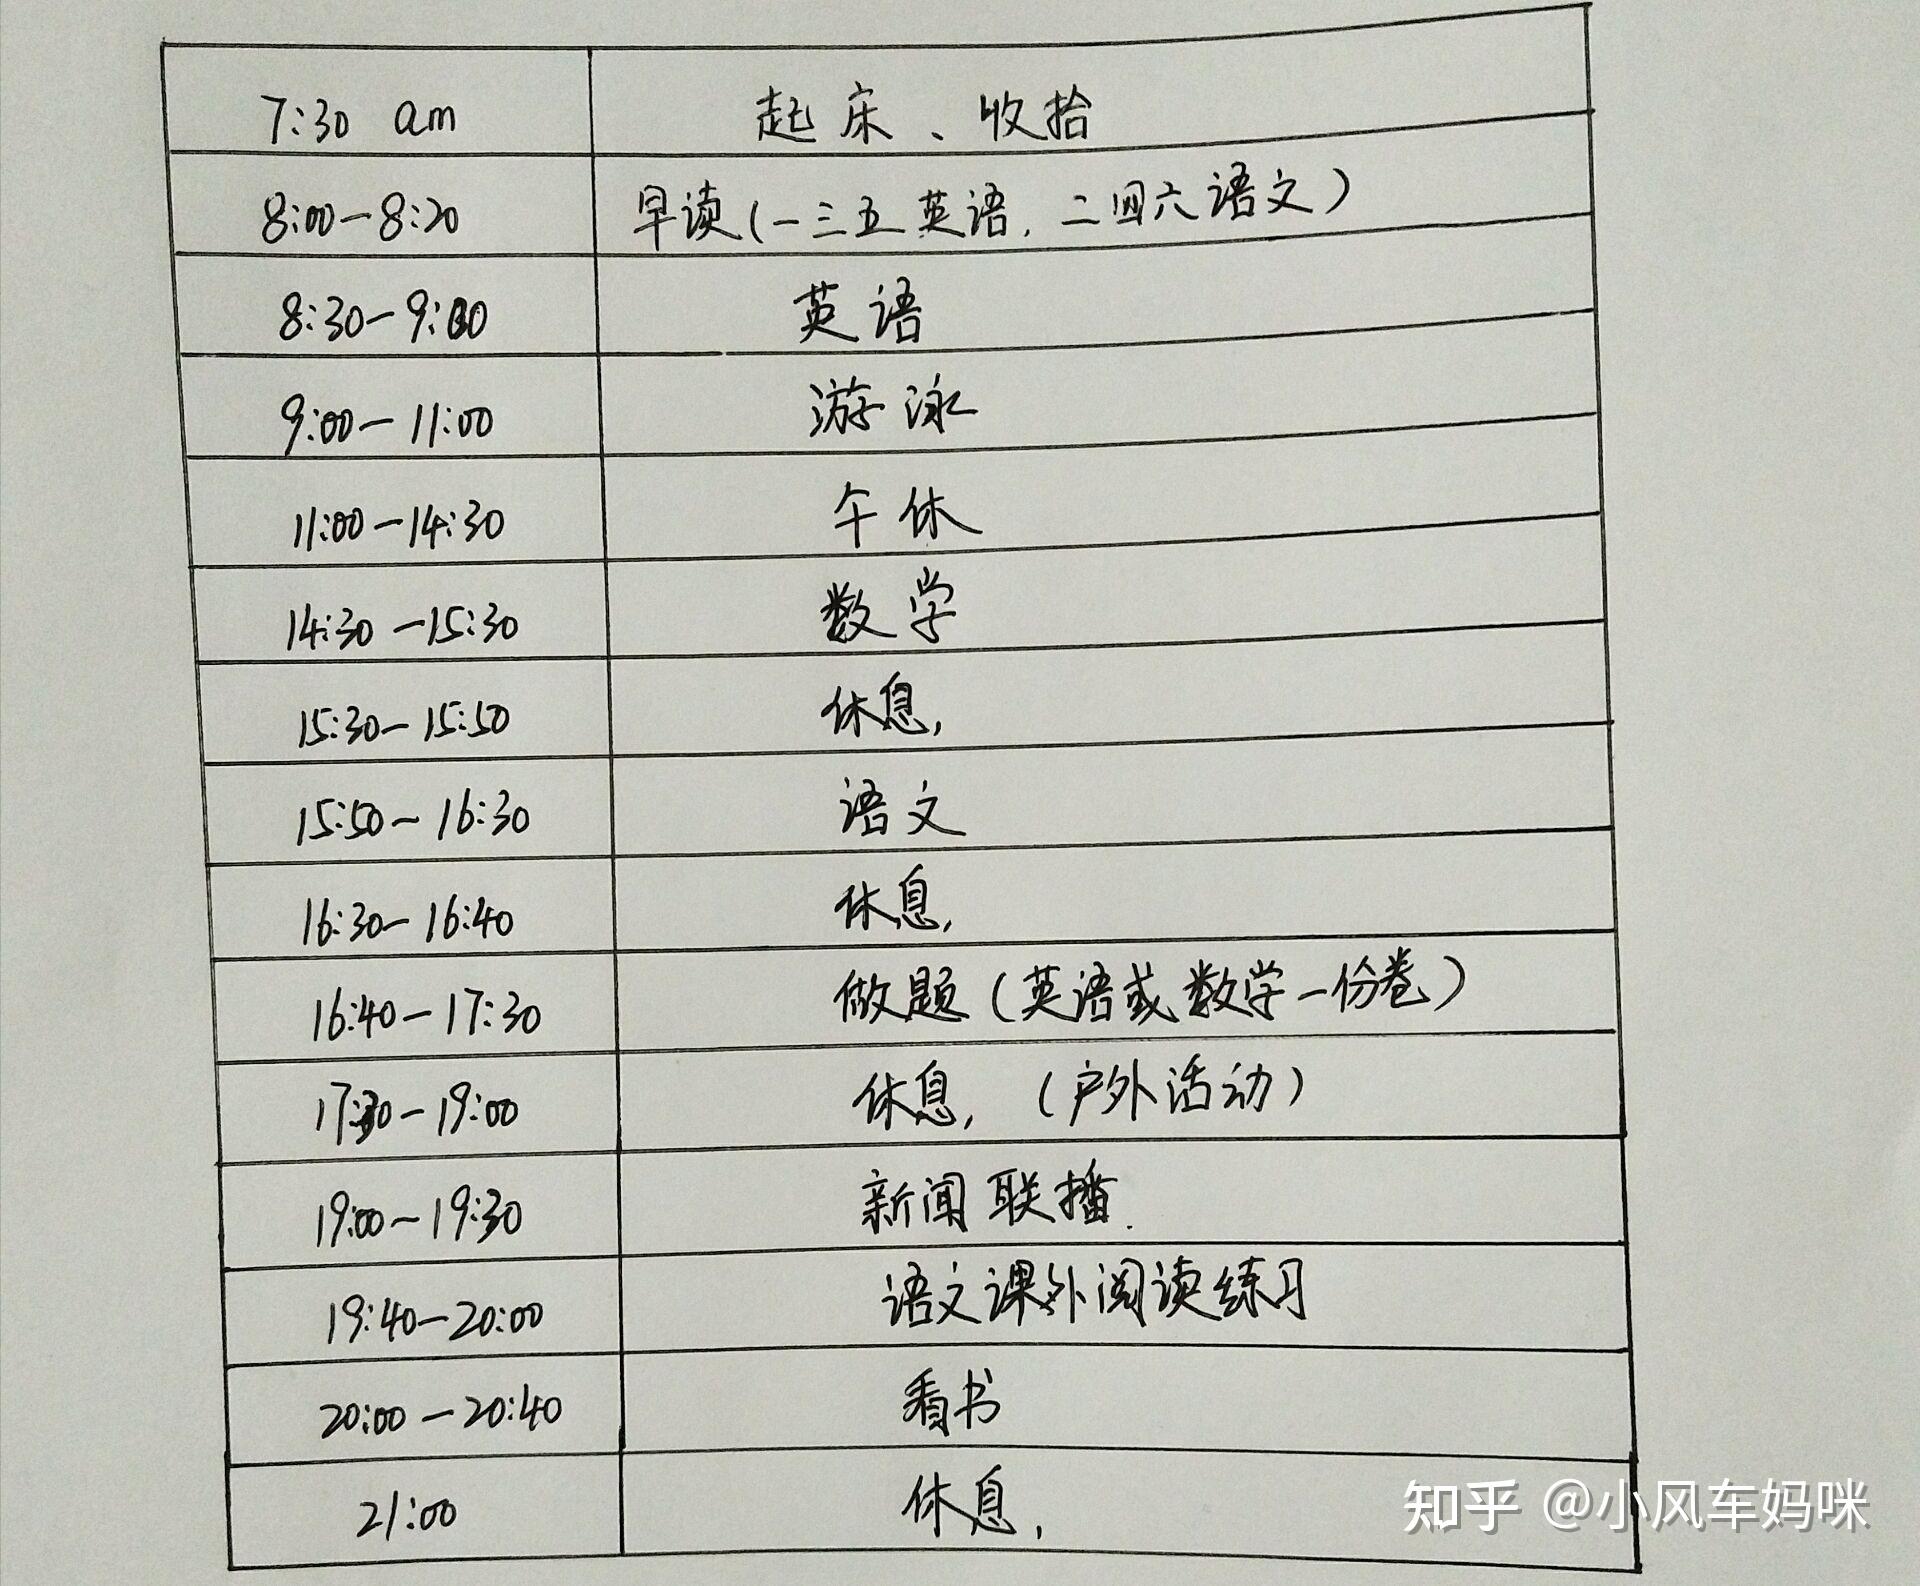 7:30 am 起床、收拾
8:00-8:20 早读(一三五英语,二四六语文)
8:30-9:00 英语
9:00-11:00 游泳
11:00-14:30 午休
14:30-15:30 数学
15:30-15:50 休息,
15:50-16:30 语文
16:30-16:40 休息,
16:40-17:30 做题(英语或数学一份卷)
17:30-19:00 休息,(户外活动)
19:00-19:30 新闻联播.
19:40-20:00 语文课外阅读练习
20:00-20:40 看书
21:00 休息,
知乎 @小风车妈咪